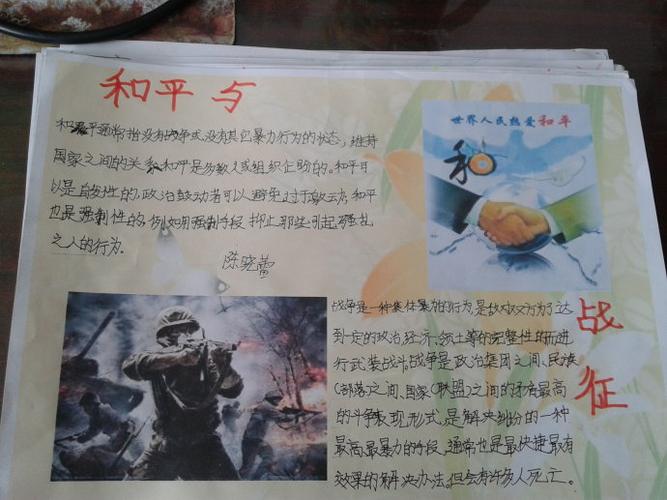 和平与
和平通常指没有战争或没有其它暴力行为的状态，维持
国家之间的关系和平是多数人或组织企盼的。和平可
以是自发性的，政治鼓动者可以避免过于敏云，和平
也是强制性的，例如用强制手段抑止那些引起骚乱
之人的行为。
陈晓蕾
世界人民热爱和平
和
战
征
战争是一种集体暴力的行为，是敌对双方为了达
到一定的政治、经济、领土等的完整性的而进
行武装战斗。战争是政治集团之间、民族
(部落)之间、国家(联盟)之间的矛盾最高
的斗争表现形式，是解决纠纷的一种
最高、最暴力的手段，通常也是最快捷最有
效果的解决办法。但会有许多人死亡。